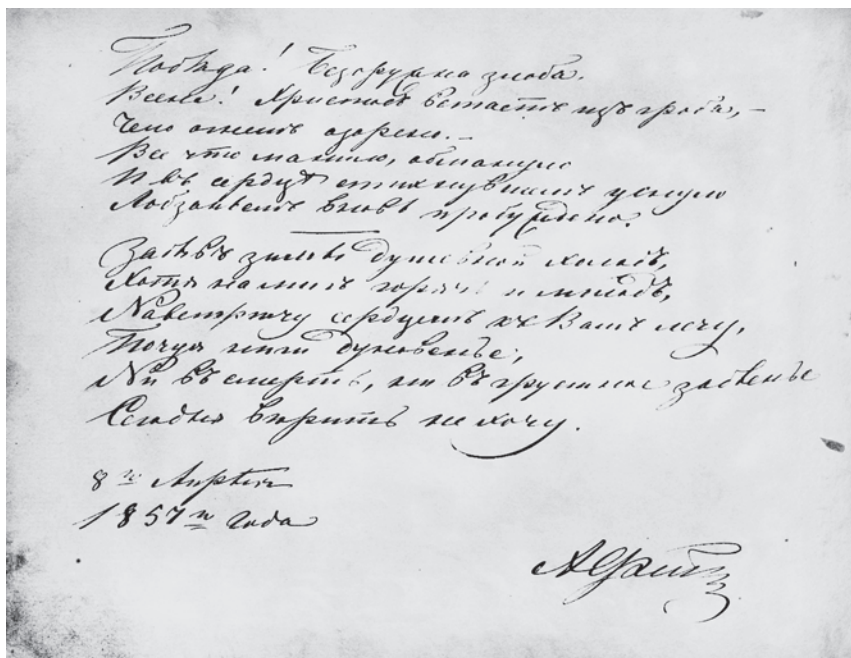 Побѣда! Безоружна злоба.
Весна! Христосъ встаетъ изъ гроба, –
Чело огнемъ озарено. –
Все что манило, обмануло
И въ сердцѣ стихнувшемъ уснуло
Лобзаньемъ вновь пробуждено.
Забывъ зимы душевной холодъ,
Хотя на мигъ горячъ и молодъ,
Навстрѣчу сердцемъ къ Вамъ лечу,
Почуя нѣги дуновенье,
Ни въ смерть, ни въ грустное забвенье
Сегодня вѣрить не хочу.
8го Апрѣля
1857го года
АФетъ